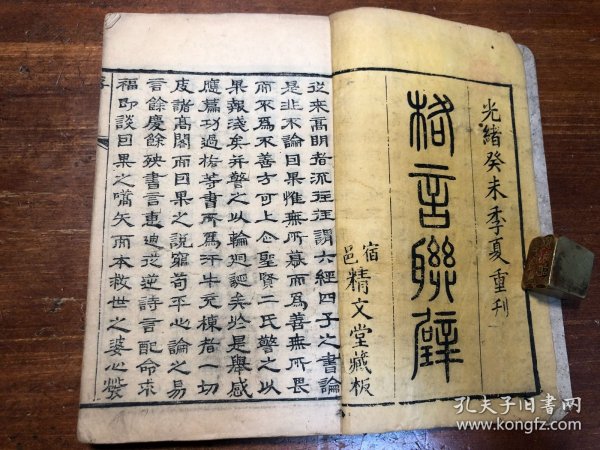 光緒癸未季夏重刊
格言聯璧
宿邑精文堂藏板
從來高明者流往往謂六經四子之書論
是非不論因果惟無所慕而為善無所畏
而不為不善方可上企聖賢二氏警之以
果報淺矣并警之以輪廻誕矣於是舉感
應篇功過格等書所為汗牛充棟者一切
庋諸高閣而因果之說竊苟平心論之易
言餘慶餘殃書言惠迪從逆詩言配命求
福即談因果之嚆矢而本救世之婆心發
序
孔夫子旧书网
www.kongfz.com